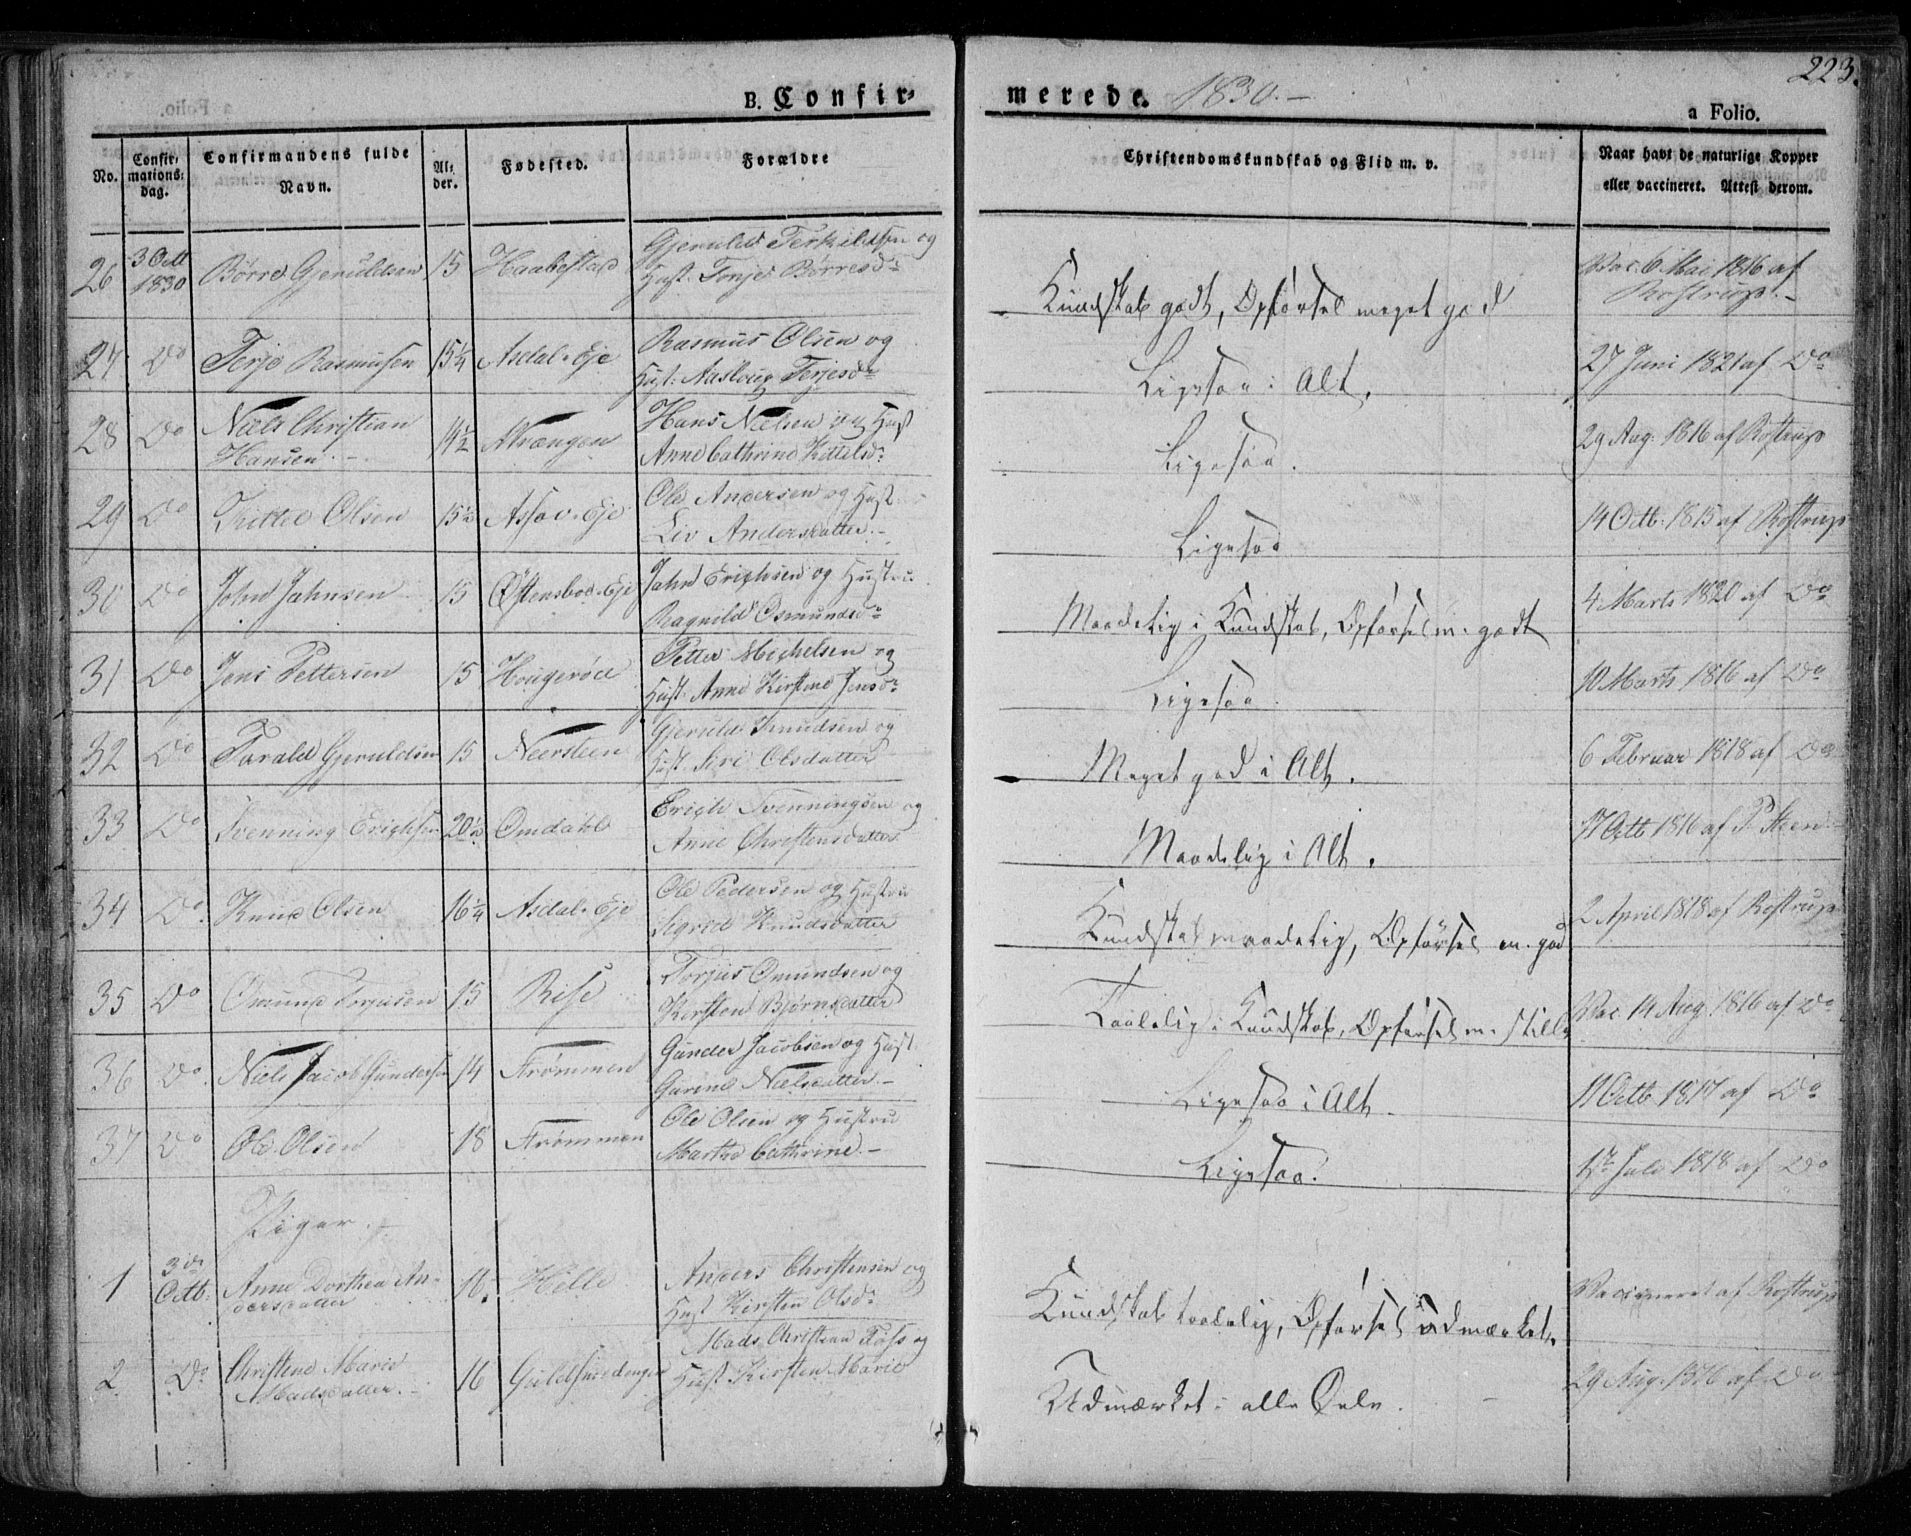 223.
B. Confirmerede. 1830.-
a Folio.
No. Confirmationsdag. Confirmandens fulde Navn. Alder. Fødested. Forældre Christendomskundskab og Flid m. v. Naar havt de naturlige Kopper eller vaccineret. Attest derom.
26 3 Octb 1830 Børre Gjeruldsen 15 Haabestad Gjeruld Terkildsen og Hust. Tonje Børresdr Kundskab godt, Opførsel meget god Vac. 6 Mai 1816 af Rostrup.-
27 Do Terje Rasmusen 15¼ Asdal-Eje Rasmus Olsen og Hust: Aasloug Terjesdr Ligesaa i Alt. 27 Juni 1821 af Do
28 Do Niels Christian Hansen.- 14½ Hans Nielsen og Hust Anne Cathrine Kittelsdr Ligesaa. 29 Aug. 1816 af Rostrup
29 Do Kittel Olsen 15½ Assav-Eje Ole Andersen og Hust. Liv Andersdatter.- Ligesaa 14 Octb. 1815 af Rostrup
30 Do John Jahnsen 15 Østensbod-Eje Jahn Erichsen og Hustru Ragnild Osmundsdr Maadelig i Kundskab, Opførsel m. godt 4 Marts 1820 af Do
31 Do Jens Pettersen 15 Hougerød Petter Michelsen og Hust. Anne Kirstine Jensdr Ligesaa. 10 Marts 1816 af Do
32 Do Tarald Gjeruldsen 15 Neersteen Gjeruld Knudsen og Hust. Siri Olsdatter Meget god i Alt. 6 Februar 1818 af Do
33 Do Svenning Erichsen 20½ Omdahl Erich Svenningsen og Anne Christensdatter Maadelig i Alt. 17 Octb 1816 af P. Steen
34 Do Knud Olsen 16¼ Asdal-Eje Ole Pedersen og Hustru Sigrid Knudsdatter Kundskab maadelig, Opførsel m. god 2 April 1818 af Rostrup
35 Do Omund Torjusen 15 Rise Torjus Omundsen og Kirsten Bjørnsdatter Taalelig i Kundskab, Opførsel m. stille Vac. 14 Aug 1816 af Do
36 Do Niels Jacob Gundersen 14 Strømmen Gunder Jacobsen og Hust. Gurine Nielsdatter.- Ligesaa i Alt. 11 Octb 1817 af Do
37 Do Ole Olsen 18 Strømmen Ole Olsen og Hustru Marthe Cathrine.- Ligesaa. Juli 1818 af Do
Piger.-
1 3de Octb. Anne Dorthea Andersdatter 16. Helle Anders Christensen og Hust Kirsten Olsdr Kundskab taalelig, Opførsel udmærket. Vaccineret af Rostrup
2 Do Christine Marie Madsdatter.- 16 Guldsmedengen Mads Christian Foss og Hust Kirsten Marie Udmærket i alle Dele. 29 Aug. 1816 af Do